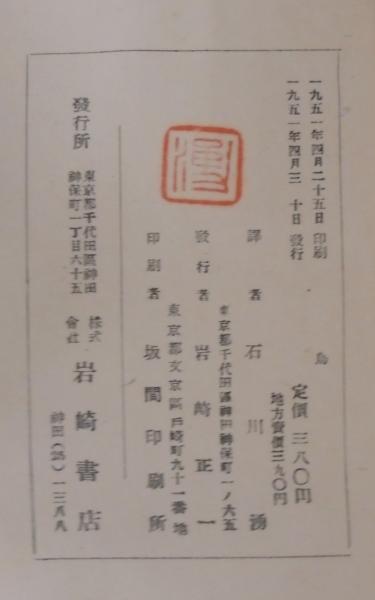 一九五一年四月二十五日 印刷
一九五一年四月三十日 發行
鳥
定價 三八〇円
地方賣價三九〇円
譯者 石川湧
東京都千代田區神田神保町一ノ六五
發行者 岩崎正一
東京都文京區戶崎町九十一番地
印刷者 坂間印刷所
湧
發行所
東京都千代田區神田
神保町一丁目六十五
株式
會社
岩崎書店
神田(25)一三八八